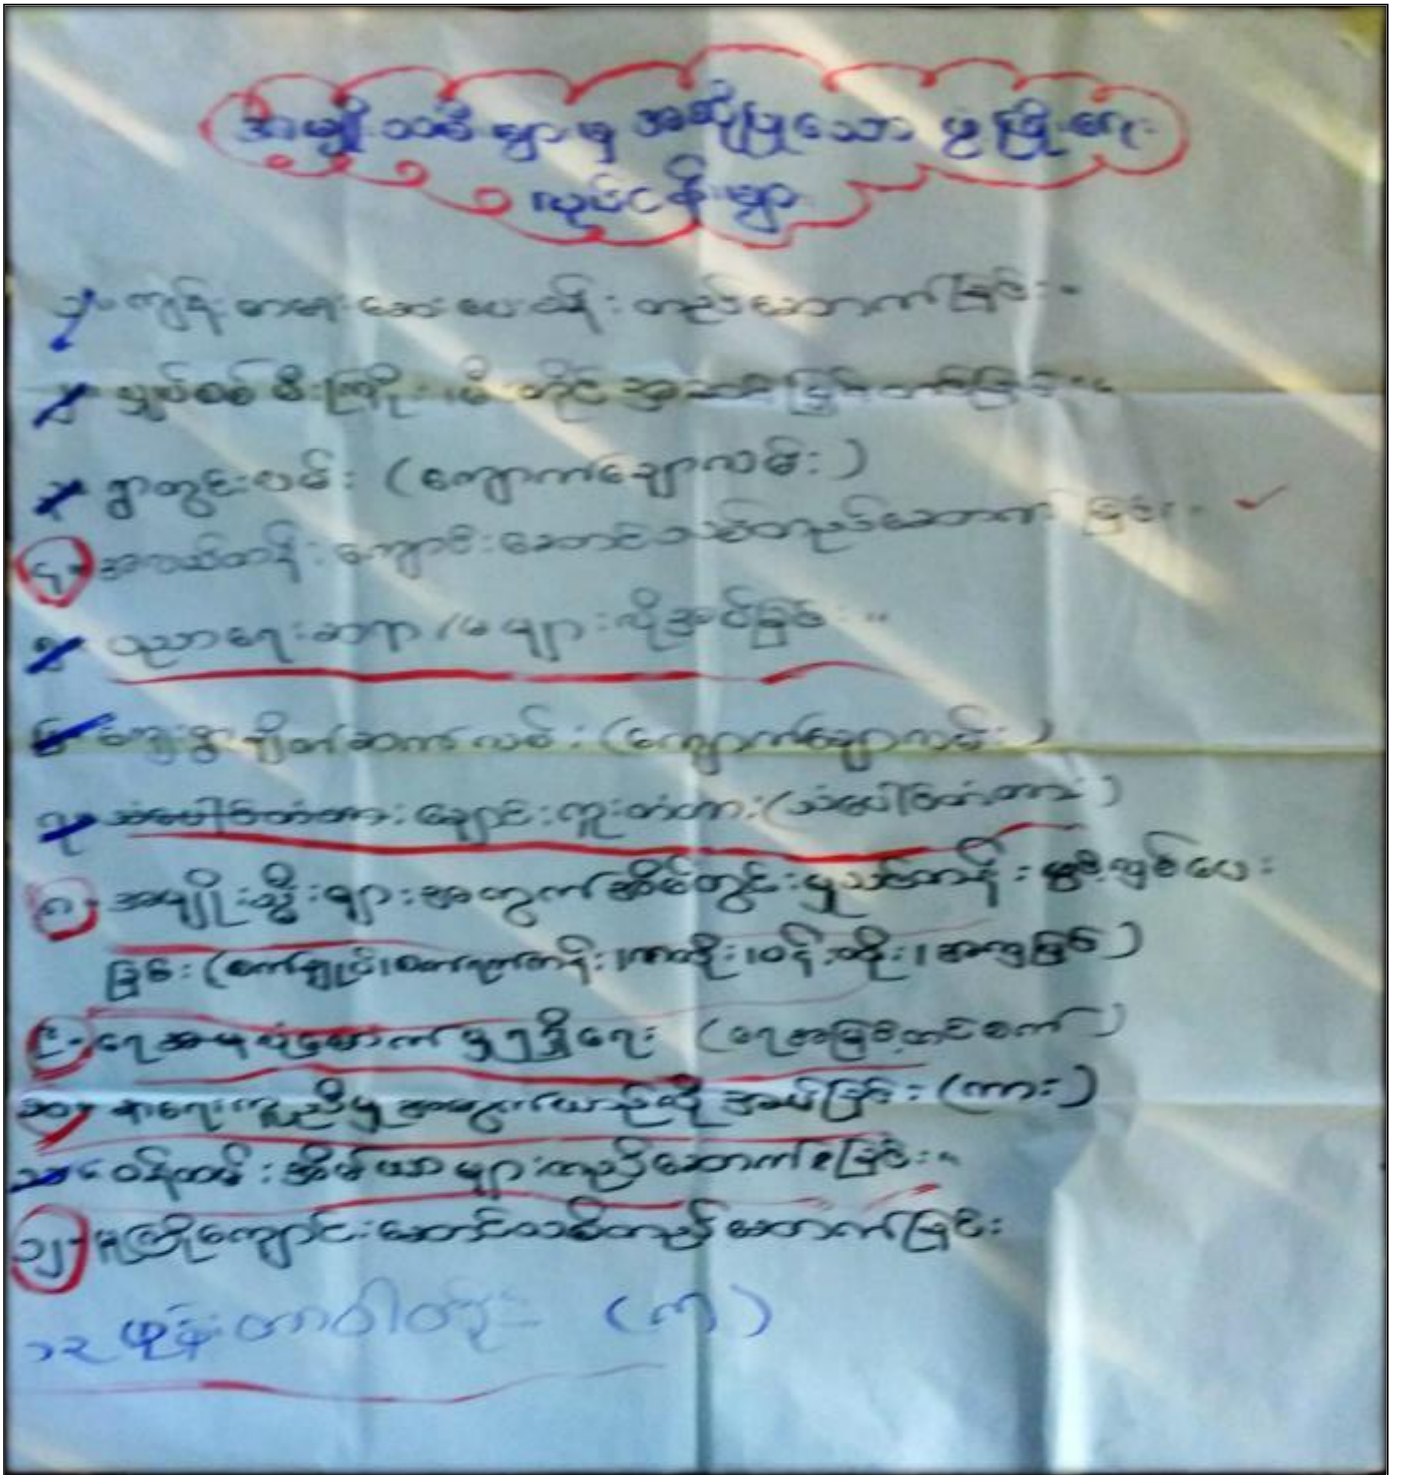 အမျိုးသမီးများမှ အဆိုပြုသော ဖွံ့ဖြိုးရေး
လုပ်ငန်းများ
၁။ ကျန်းမာရေးဆေးပေးခန်းတည်ဆောက်ခြင်း။
၂။ လျှပ်စစ်မီးကြိုး၊ မီးတိုင်
၃။ ရွာတွင်းလမ်း (ကျောက်ချောလမ်း)
၄။ အလယ်တန်းကျောင်းဆောင်သစ်တည်ဆောက်ခြင်း။
၅။ ပညာရေးဆရာ/မများလိုအပ်ခြင်း။
၆။ ကျေးရွာချိတ်ဆက်လမ်း (ကျောက်ချောလမ်း)
၇။ သံပေါင်တံတား ချောင်းကူးတံတား (သံပေါင်တံတား)
၈။ အမျိုးသ္မီးများအတွက်အိမ်တွင်းမှုသင်တန်းဖွင့်လှစ်ပေး
ခြင်း (စက်ချုပ်၊
၉။ ရေအမြဲ ရရှိရေး (ရေအမြင့်တင်စက်)
၁၀။ နာရေးကူညီမှုအတွက်ယာဉ်လိုအပ်ခြင်း (ကား)
၁၁။ ဝန်ထမ်းအိမ်ယာများတည်ဆောက်ခြင်း။
၁၂။ မူကြိုကျောင်းဆောင်သစ်တည်ဆောက်ခြင်း
၁၃ ဖုန်းတာဝါတိုင်